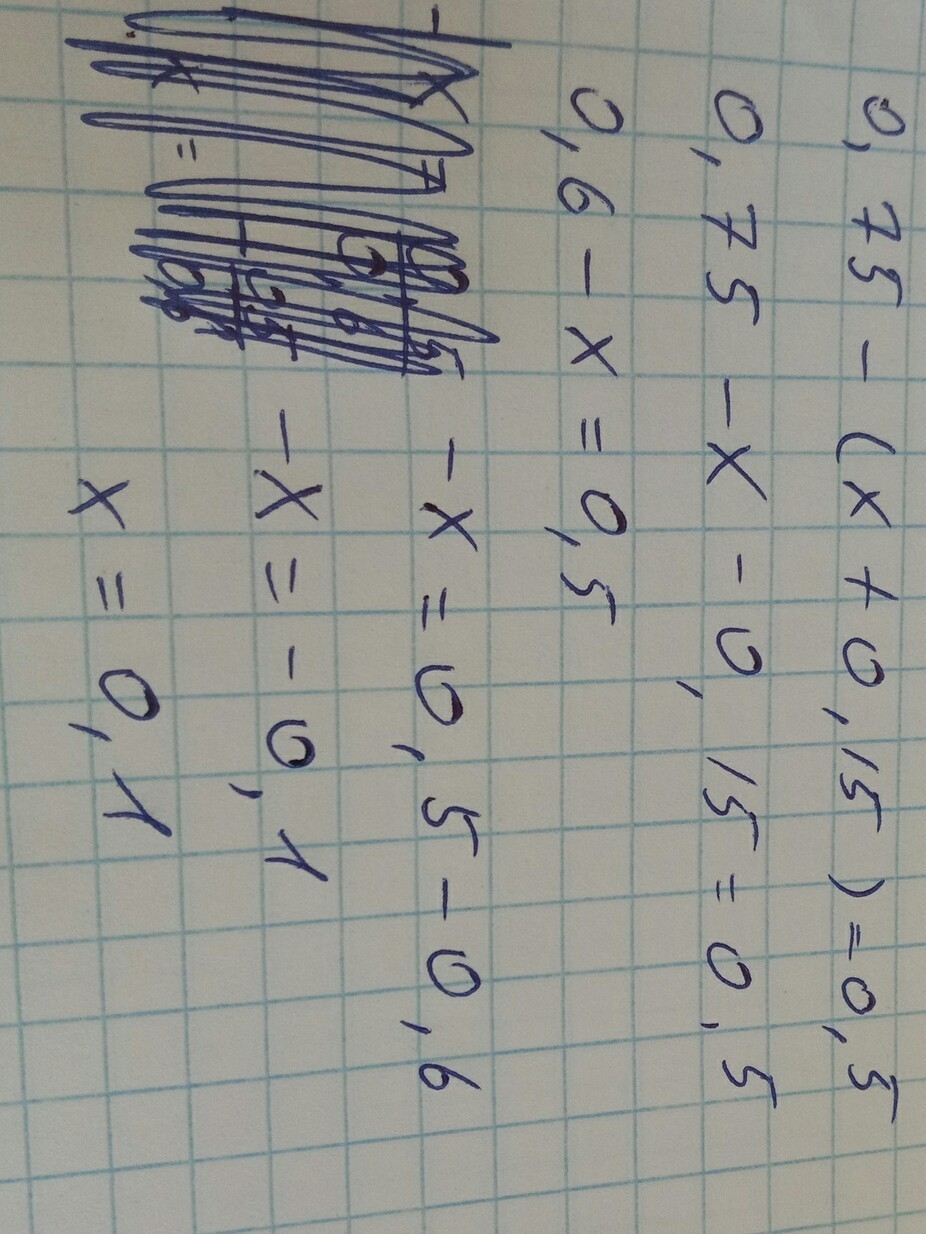 0,75 - (x + 0,15) = 0,5
0,75 - x - 0,15 = 0,5
0,6 - x = 0,5
- x = 0,5 - 0,6
- x = - 0,1
x = 0,1